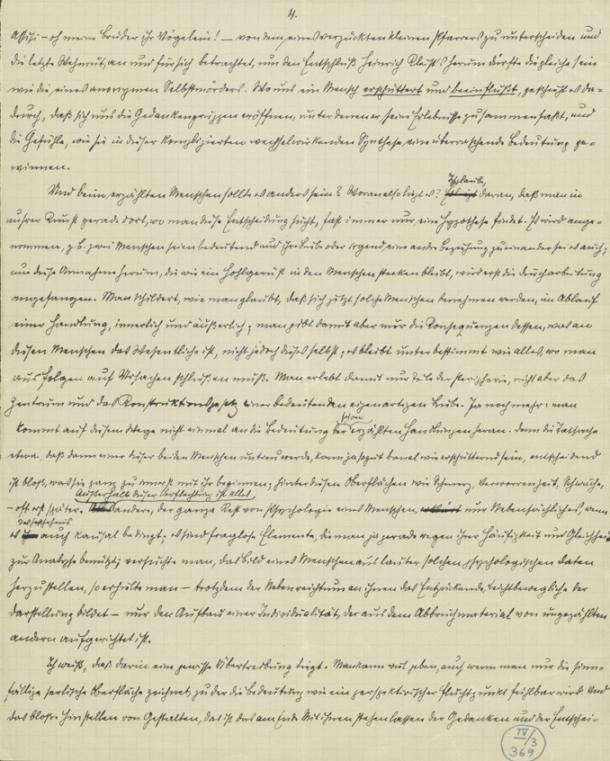 4.
Assisi – oh meine Brüder ihr Vögelein! – von dem eines verzückten kleinen Pfarrers zu unterscheiden und
die letzte Wehmut, an und für sich betrachtet, um den Entschluß Heinrich Kleist's herum dürfte die gleiche sein
wie die eines anonymen Selbstmörders. Wo uns ein Mensch erschüttert und beeinflußt, geschieht es da-
durch, daß sich uns die Gedankengruppen eröffnen, unter denen er seine Erlebnisse zusammenfaßt, und
die Gefühle, wie sie in dieser komplizierten wechselwirkenden Synthese eine überraschende Bedeutung ge-
winnen.
Und beim erzählten Menschen sollte es anders sein? Woran also liegt es? Ich glaube, daran, daß man in
unsrer Kunst gerade dort, wo man diese Entscheidung sucht, fast immer nur eine Hypothese findet. Es wird ange-
nommen, z. B. zwei Menschen seien bedeutend und ihre Liebe oder irgend eine andre Beziehung zueinander sei es auch;
um diese Annahme herum, die wie ein Hohlgerüst in den Menschen stecken bleibt, wird erst die Durcharbeitung
angefangen. Man schildert, wie man glaubt, daß sich jetzt solche Menschen benehmen werden, im Ablauf
einer Handlung, innerlich und äußerlich; man gibt damit aber nur die Konsequenzen dessen, was an
diesen Menschen das Wesentliche ist, nicht jedoch dieses selbst; es bleibt unterbestimmt wie alles, wo man
aus Folgen auf Ursachen schließen muß. Man erlebt damit nur Teile der Peripherie, nicht aber das
Zentrum und das Konstruktionsgesetz einer bedeutenden eigenartigen Liebe. Ja noch mehr: man
kommt auf diesem Wege nicht einmal an die Bedeutung der erzählten Handlungen heran. Denn die Tatsache
etwa, daß dann einer dieser beiden Menschen untreu werde, kann ja so gut banal wie erschütternd sein, entscheidend
ist bloß, was sie ganz zu innerst mit ihr beginnen; hinter diesen Oberflächen wie Schmerz, Verworrenheit, Schwäche,
– oft erst später. Außerhalb dieser Verflechtung ist alles andere, der ganze Rest von Psychologie eines Menschen, nur Nebensächliches,
es auch kausal bedingt; es sind fraglose Elemente, die man ja gerade wegen ihrer Häufigkeit und Gleichheit
zur Analyse benützt; versuchte man, das Bild eines Menschen aus lauter solchen psychologischen Daten
herzustellen, so erhielte man – trotzdem der Nebenreichtum an ihnen das Entzückende, leichtbewegliche der
Darstellung bildet – nur den Aufbau einer Individualität, der aus dem Abbruchmaterial von ungezählten
andern aufgerichtet ist.
Ich weiß, daß darin eine gewisse Übertreibung liegt. Man kann viel geben, auch wenn man nur die sinn-
fällige seelische Oberfläche zeichnet, zu der die Bedeutung wie ein perspektivischer Fluchtpunkt fühlbar wird. Und
das bloße Hinstellen von Gestalten, das ist das am Ende Mit ihnen stehen lassen der Gedanken und der Entschei-
IV/3
369